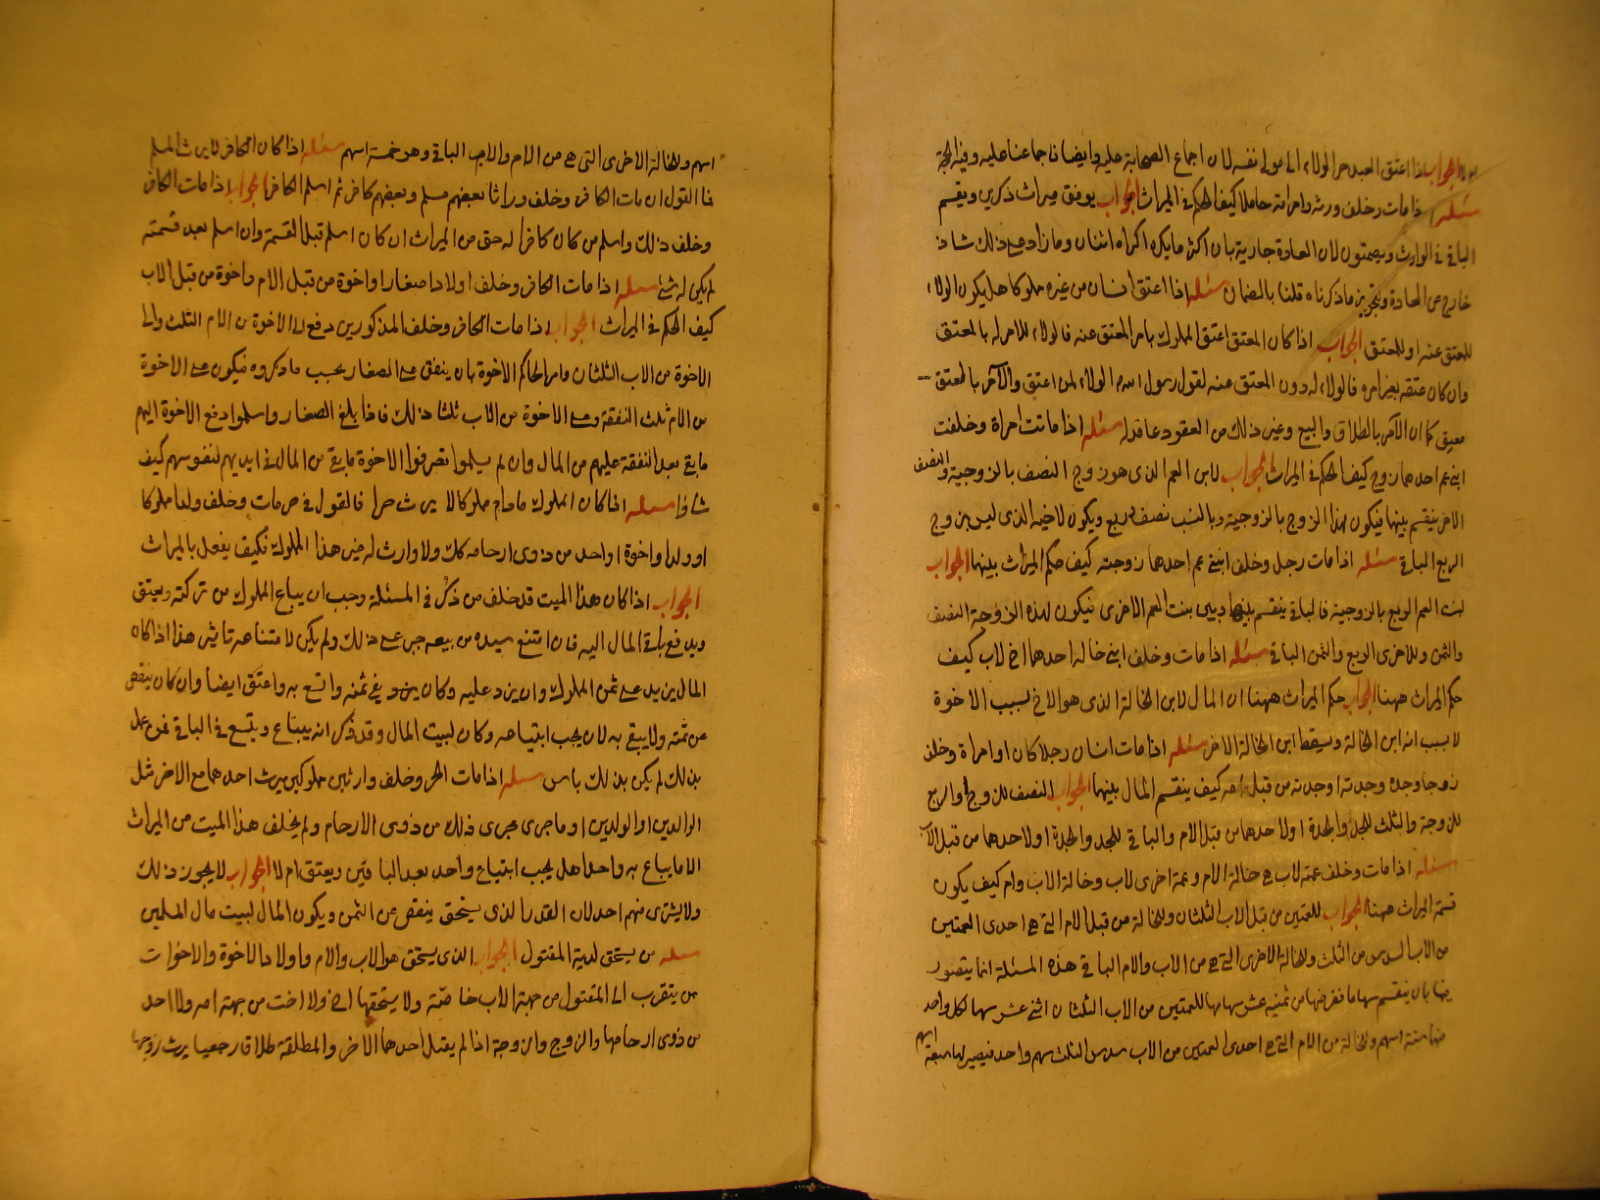 الجواب اذا اعتق العبد جر الولاء الى موالى نفسه لان اجماع الصحابة عليه وايضا فاجماعنا عليه وفيه الحجة
مسئلة اذا مات وخلف ورثة وامراته حاملا كيف الحكم في الميراث الجواب يوقف ميراث ذكرين ويقسم
الباقي في الوارث ويضمنون لان العادة جارية بان اكثر ما يكون اكراه اثنان وما زاد على ذلك شاذ
خارج عن العادة وتجويز ما ذكرناه قلنا بالضمان مسئلة اذا اعتق انسان من غيره مملوكا هل يكون الولاء
للمعتق عنه او للمعتق الجواب اذا كان المعتق اعتق المملوك بامر المعتق عنه فالولاء للامر له بالمعتق
وان كان عتقه بغير امره فالولاء له دون المعتق عنه لقول رسول الله الولاء لمن اعتق والآمر بالمعتق
معتق كما ان الآمر بالطلاق والبيع وغير ذلك من العقود عاقد له مسئلة اذا ماتت امراة وخلفت
ابني عم احدهما زوج كيف الحكم في الميراث الجواب لابن العم الذي هو زوج النصف بالزوجية والنصف
الاخر ينقسم بينهما فيكون لهذا الزوج بالزوجية وبالنسب نصف وربع ويكون لاخيه الذي ليس بزوج
الربع الباقي مسئلة اذا مات رجل وخلف ابنتي عم احدهما زوجته كيف حكم الميراث بينهما الجواب
لبنت العم الربع بالزوجية فالباقي ينقسم بينها وبين بنت العم الاخرى فيكون لهذه الزوجة النصف
والثمن وللاخرى الربع والثمن الباقي مسئلة اذا مات وخلف ابني خالة احدهما اخ لاب كيف
حكم الميراث ههنا الجواب حكم الميراث ههنا ان المال لابن الخالة الذي هو الاخ لسبب الاخوة
لا بسبب انه ابن الخالة ويسقط ابن الخالة الاخر مسئلة اذا مات انسان رجلا كان او امراة وخلف
زوجا وجده وجدته او جدته من قبل امه كيف ينقسم المال بينهما الجواب النصف للزوج او الربع
للزوجة والثلث للجد او الجدة او لاحدهما من قبل الام والباقي للجد والجدة او لاحدهما من قبل الاب
مسئلة اذا مات وخلف عمته لاب هي خالة الام وعمة اخرى لاب وخالة الاب وام كيف يكون
قسمة الميراث ههنا الجواب للعمتين من قبل الاب الثلثان وللخالة من قبل الام التي هي احدى العمتين
من الاب السدس من الثلث وللخالة الاخرى التي هي من الاب والام الباقي هذه المسئلة انما يتصور
فيها بان ينقسم سهاما فنفرضها من ثمنية عشر سهاما للعمتين من الاب الثلثان اثنى عشر سهما لكل واحد
منها ستة اسهم وللخالة من الام التي هي احدى العمتين من الاب سدس الثلث سهم واحد فيصير لها سبعة اسهم
اسهم وللخالة الاخرى التي هي من الام والاب الباقي وهو خمسة اسهم مسئلة اذا كان الكافر لا يرث المسلم
فما القول ان مات الكافر وخلف وراثا بعضهم مسلم وبعضهم كافر ثم اسلم الكافر الجواب اذا مات الكافر
وخلف ذلك واسلم من كان كافرا له حق من الميراث ان كان اسلم قبل القسمة وان اسلم بعد قسمته
لم يكن له شئ مسئلة اذا مات الكافر وخلف اولادا صغارا واخوة من قبل الام واخوة من قبل الاب
كيف الحكم في الميراث الجواب اذا مات الكافر وخلف المذكورين دفع الى الاخوة من الام الثلث والى
الاخوة من الاب الثلثان وامر الحاكم الاخوة بان ينفق على الصغار بحسب ما ذكروه فيكون على الاخوة
من الام ثلث النفقة وعلى الاخوة من الاب ثلثا ذلك فاذا بلغ الصغار واسلموا دفع الاخوة اليهم
ما بقي بعد النفقة عليهم من المال وان لم يسلموا تصرفوا الاخوة ما بقي من المال في ايديهم لنفوسهم كيف
شاؤا مسئلة اذا كان المملوك مادام مملوكا لا يرث حرا فالقول في من مات وخلف ولدا مملوكا
او ولدا واخوة او احد من ذوي ارحامه كك ولا وارث له غير هذا المملوك فكيف يفعل بالميراث
الجواب اذا كان هذا الميت قد خلف من ذكر في المسئلة وجب ان يباع المملوك من تركته ويعتق
ويدفع باقي المال اليه فان امتنع سيده من بيعه جبر على ذلك ولم يكن لامتناعه تاثير هذا اذا كان
المال يزيد على ثمن المملوك وان يزد عليه وكان يزد يفي ثمنه واتسع به واعتق ايضا وان كان ينقص
عن ثمنه ولا يبقي به لان يجب ابتياعه وكان لبيت المال وقد ذكر انه يبتاع ويتسع في الباقي فمن عمل
بذلك لم يكن بذلك باس مسئلة اذا مات الحر وخلف وارثين مملوكين يرث احدهما مع الاخر مثل
الوالدين او الولدين او ما جرى مجرى ذلك من ذوي الارحام ولم يخلف هذا الميت من الميراث
الا ما يباع به واحدا هل يجب ابتياع واحد بعد الباقين ويعتق ام لا الجواب لا يجوز ذلك
ولا يشترى منهم احد لان القدر الذي يستحق ينقص عن الثمن ويكون المال لبيت مال المسلمين
مسئلة من يستحق لدية المقتول الجواب الذي يستحق هو الاب والام واولاد الاخوة والاخوات
من يتقرب الى المقتول من جهة الاب خاصة ولا يستحقها اخ ولا اخت من جهة امه ولا احد
من ذوي ارحامها والزوج والزوجة اذا لم يقتل احدهما الاخر والمطلقة طلاقا رجعيا يرث زوجها